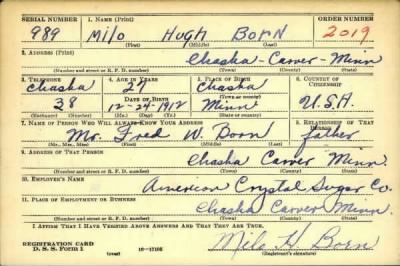 SERIAL NUMBER 1. NAME (Print) ORDER NUMBER
989 Milo Hugh Born 2019
(First) (Middle) (Last)
2. ADDRESS (Print)
Chaska - Carver - Minn
(Number and street or R. F. D. number) (Town) (County) (State)
3. TELEPHONE 4. AGE IN YEARS 5. PLACE OF BIRTH 6. COUNTRY OF CITIZENSHIP
Chaska 27 Chaska
DATE OF BIRTH (Town or county)
38 12-24-1912 Minn U.S.A.
(Exchange) (Number) (Mo.) (Day) (Yr.) (State or country)
7. NAME OF PERSON WHO WILL ALWAYS KNOW YOUR ADDRESS 8. RELATIONSHIP OF THAT PERSON
Mr. Fred W. Born father
(Mr., Mrs., Miss) (First) (Middle) (Last)
9. ADDRESS OF THAT PERSON
Chaska Carver Minn.
(Number and street or R. F. D. number) (Town) (County) (State)
10. EMPLOYER'S NAME
American Crystal Sugar Co.
11. PLACE OF EMPLOYMENT OR BUSINESS
Chaska Carver Minn.
(Number and street or R. F. D. number) (Town) (County) (State)
I AFFIRM THAT I HAVE VERIFIED ABOVE ANSWERS AND THAT THEY ARE TRUE.
REGISTRATION CARD
D. S. S. FORM 1 (over) 16-17105 Milo H. Born
(Registrant's signature)